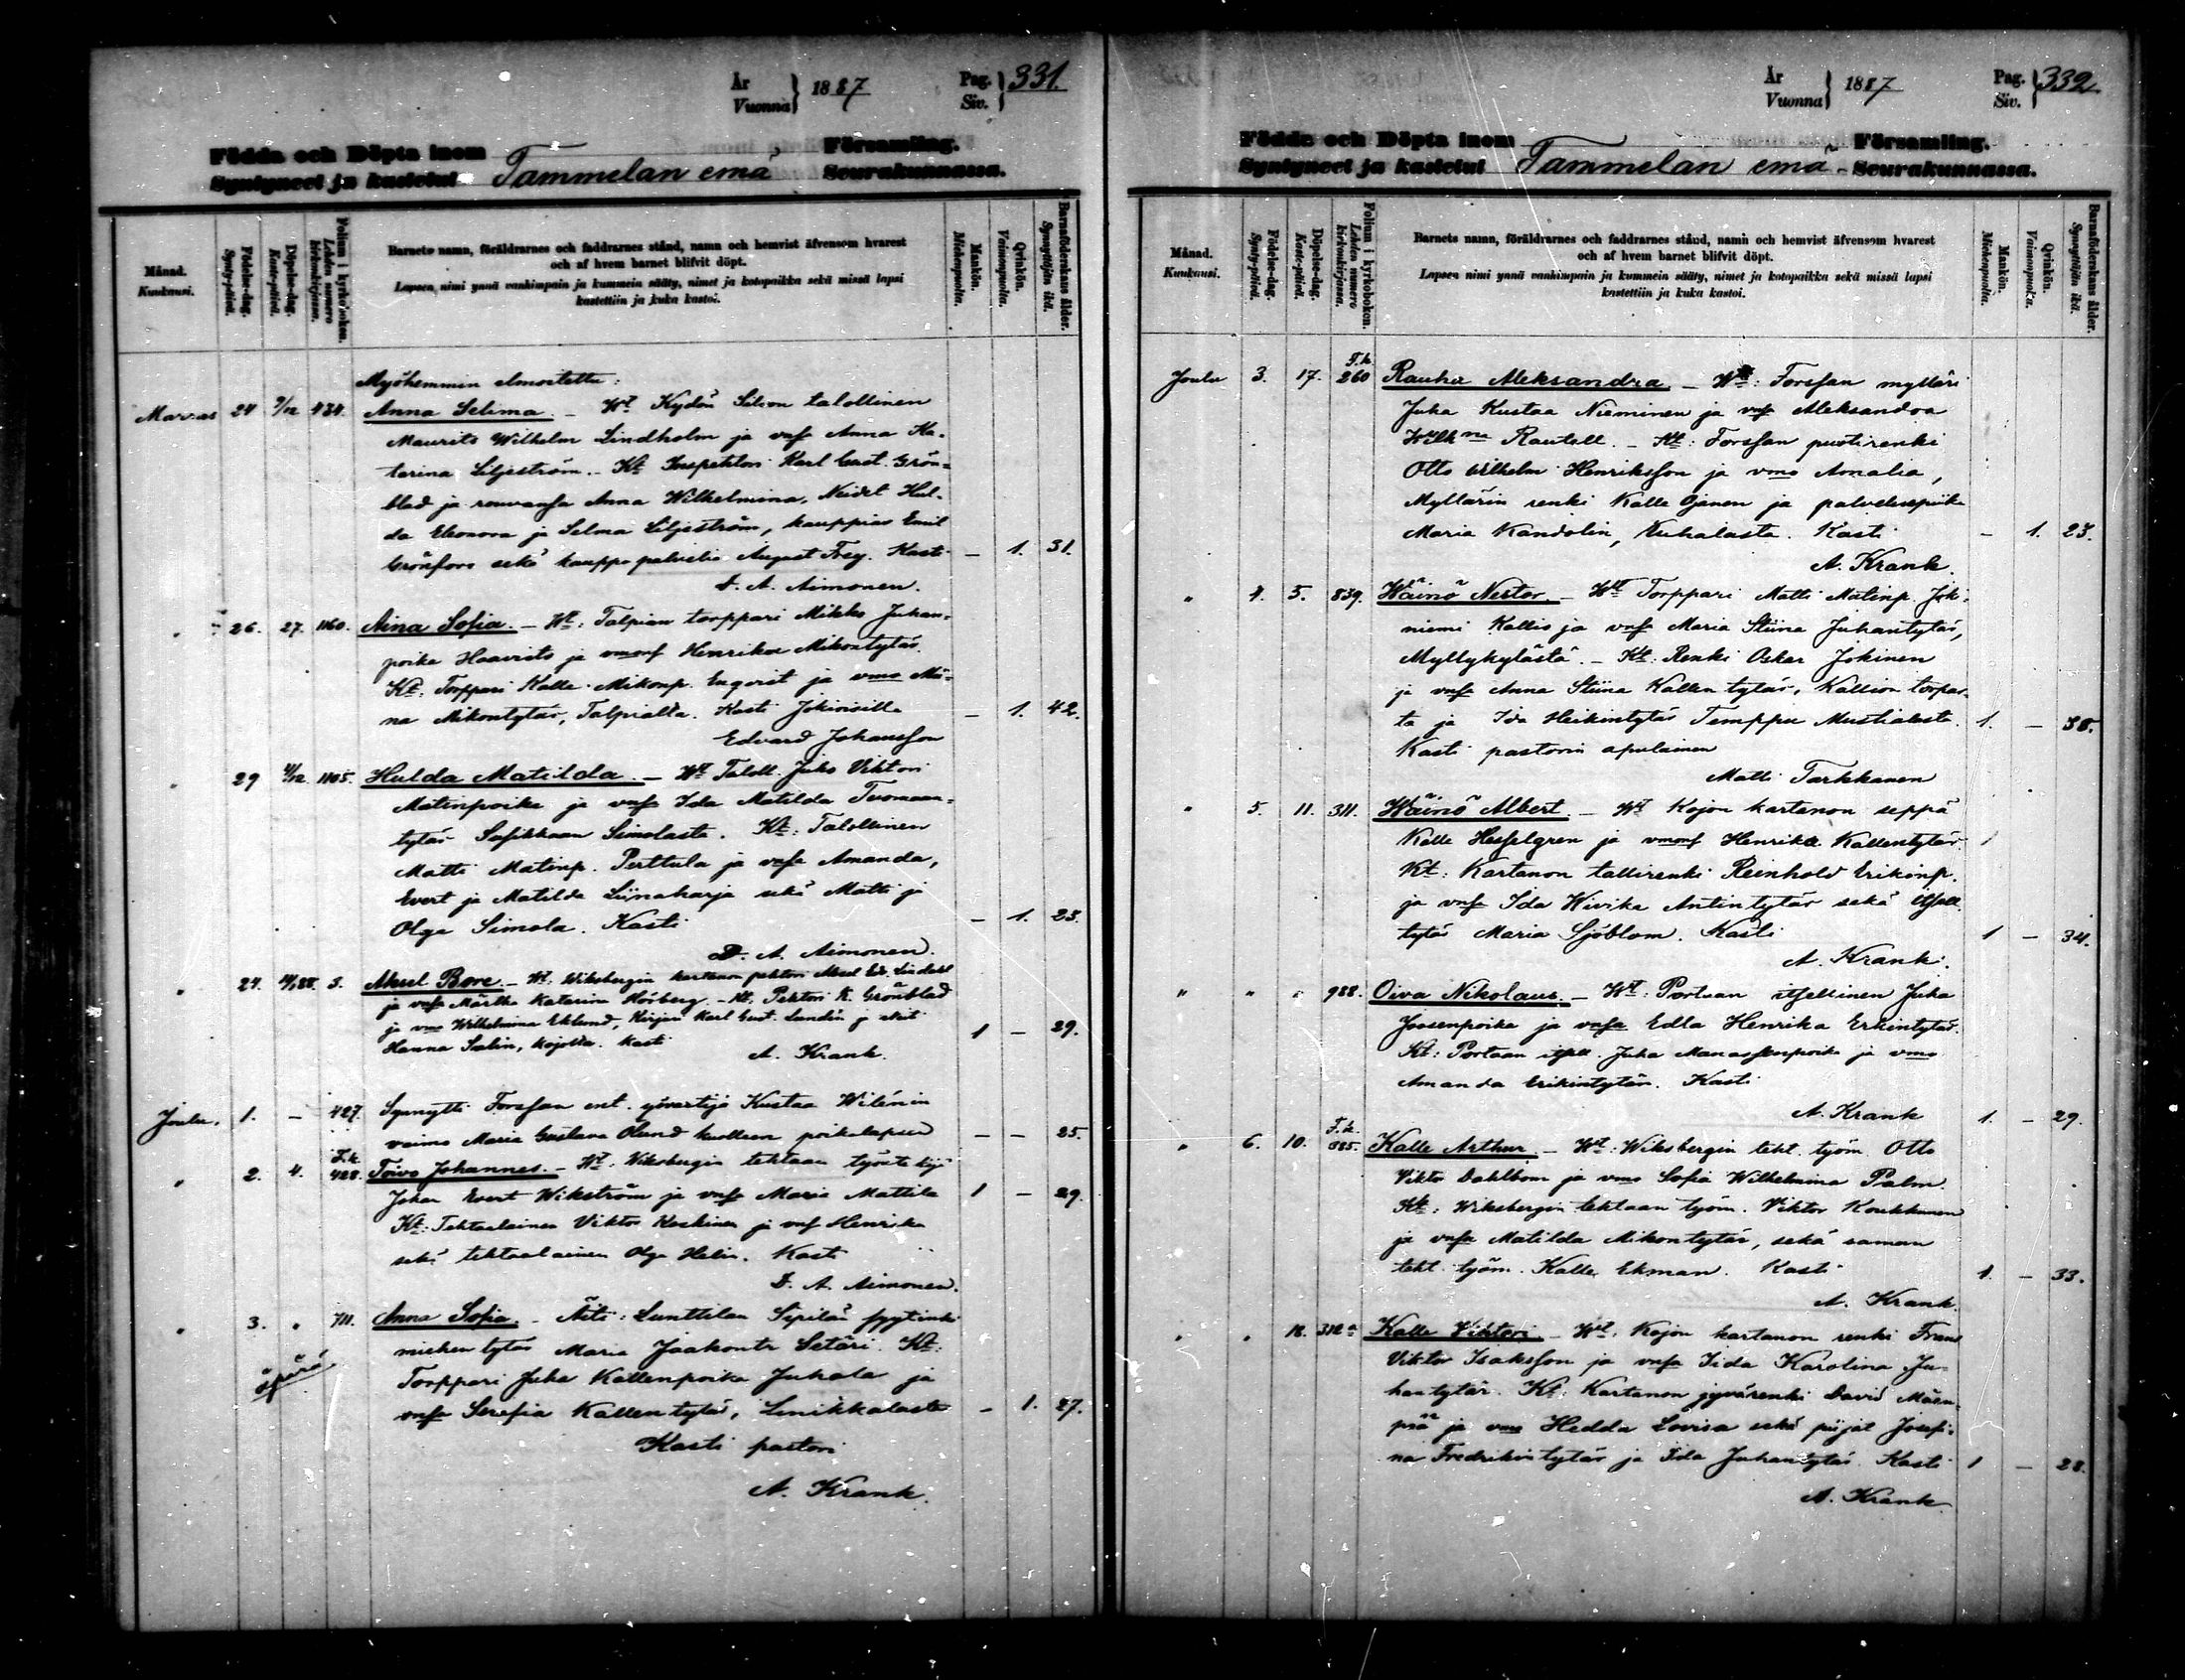 År
Vuonna } 1887
Pag.
Siv. } 331.
Födda och Döpta inom
Syntyneet ja kastetut Tammelan emä
Församling.
Seurakunnassa.
Månad.
Kuukausi.
Födelse-dag.
Synty-päivä.
Döpelse-dag.
Kaste-päivä.
Folium i kyrkoboken.
Lehden numero kirkonkirjassa.
Barnets namn, föräldrarnes och faddrarnes stånd, namn och hemvist äfvensom hvarest
och af hvem barnet blifvit döpt.
Lapsen nimi ynnä vanhimpain ja kummein sääty, nimet ja kotopaikka sekä missä lapsi
kastettiin ja kuka kastoi.
Mankön.
Miehenpuolta.
Qvinkön.
Vaimonpuolta.
Barnaföderskans ålder.
Synnyttäjän ikä.
Myöhemmin ilmoitettu:
Marras 24 9/12 434. Anna Selima. - Wt Kydön talollinen
Maurits Wilhelm Lindholm ja vnsa Anna Ka-
tarina Liljeström. - Kt Inspehtori Karl Gust. Grön-
blad ja rouvansa Anna Wilhelmina, Neidet Hul-
da Eleonora ja Selma Liljeström, kauppias Emil
Grönfors sekä kauppapalvelia August Frey. Kasti - 1. 31.
D. A. Aimonen.
" 26. 27. 1160. Aina Sofia. - Wt: Talpian torppari Mikko Juhan-
poika Haavisto ja vmons Henrika Mikontytär.
Kt: Torppari Kalle Mikonp. Enqvist ja vmo
na Mikontytär, Talpialta. Kasti Jokioisilla - 1. 42.
Edvard Johansson
" 29 4/12 1105. Hulda Matilda. - Wt Taloll. Juho Viktori
Matinpoika ja vnsa Ida Matilda Tuomaan-
tytär Simolasta. Kt: Talollinen
Matti Matinp. Perttula ja vnsa Amanda,
Evert ja Matilda Liinaharja sekä Matti ja
Olga Simola. Kasti - 1. 23.
D. A. Aimonen.
" 24. 3. Aksel Bore. - Wt: Wiksbergin kartanon pehtori Aksel Edv. Lindahl
ja vnsa Märtha Katarina Hörberg. - Kt. Pehtori K. Grönblad
ja vmo Wilhelmina Eklund, Kirjuri Karl Gust. Lundin ja Neit
Hanna Salin, Kojolta. Kasti 1 - 29.
A. Krank.
Joulu. 1. - 427. Synnytti Forssan ent. yövartija Kustaa Wilénin
vaimo Maria Gustava Ölund kuolleen poikalapsen - - 25.
" 2. 4. T.k. 428. Toivo Johannes. - Wt. Wiksbergin tehtaan työntekijä
Johan Evert Wikström ja vnsa Maria Mattila 1 - 29.
Kt: Tehtaalainen Viktor Koskinen ja vns Henrika
sekä tehtaalainen Olga Helin. Kasti
D. A. Aimonen.
" 3. " 711. Anna Sofia. - Äiti: Lunttilan Sipilän
miehen tytär Maria Jaakontr Setäri. Kt:
äpärä
Torppari Juha Kallenpoika Juhala ja
vnsa Serafia Kallentytär, Linikkalasta - 1. 27.
Kasti pastori
A. Krank.
År
Vuonna } 1887
Pag.
Siv. } 332.
Födde och Döpta inom
Syntyneet ja kastetut Tammelan emä-
Församling.
Seurakunnassa.
Månad.
Kuukausi.
Födelse-dag.
Synty-päivä.
Döpelse-dag.
Kaste-päivä.
Folium i kyrkoboken.
Lehden numero kirkonkirjassa.
Barnets namn, föräldrarnes och faddrarnes stånd, namn och hemvist äfvensom hvarest
och af hvem barnet blifvit döpt.
Lapsen nimi ynnä vanhimpain ja kummein sääty, nimet ja kotopaikka sekä missä lapsi
kastettiin ja kuka kastoi.
Mankön.
Miehenpuolta.
Qvinkön.
Vaimonpuolta.
Barnaföderskans ålder.
Synnyttäjän ikä.
Joulu 3. 17. T.k. 260 Rauha Aleksandra - Wt: Forssan mylläri
Juha Kustaa Nieminen ja vnsa Aleksandra
Wilhna Rautell. - Kt: Forssan puotirenki
Otto Wilhelm Henriksson ja vmo Amalia,
Myllärin renki Kalle Ojanen ja palveluspiika
Maria Kandolin, Kuhalasta. Kasti - 1. 23.
A. Krank.
" 4. 5. 839. Wäinö Nestor. - Wt Torppari Matti Matinp. Jok-
niemi Kallio ja vnsa Maria Stiina Juhantytär,
Myllykylästä. - Kt: Renki Oskar Jokinen
ja vnsa Anna Stiina Kallentytär, Kallion torpas-
ta ja Ida Heikintytär Temppu Mustialasta. 1. - 38.
Kasti pastorin apulainen
Matti Tarkkanen
" 5. 11. 311. Wäinö Albert. - Wt Kojon kartanon seppä
Kalle Hesselgren ja vmons Henrika Kallentytär.
Kt: Kartanon tallirenki Reinhold Erikinp.
ja vnsa Ida Wivika Antintytär sekä itsell.
tytär Maria Sjöblom. Kasti 1 - 34.
A. Krank.
" " " 988. Oiva Nikolaus. - Wt: Portaan itsellinen Juha
Joosenpoika ja vnsa Edla Henrika Erkintytär.
Kt: Portaan itsell. Juha Manassenpoika ja vmo
Amanda Erikintytär. Kasti
A. Krank 1. - 29.
" 6. 10. T.k. 385. Kalle Arthur. - Wt: Wiksbergin teht. työm. Otto
Viktor Dahlbom ja vmo Sofia Wilhelmina Palm.
Kt: Wiksbergin tehtaan työm. Viktor Koukkunen
ja vnsa Matilda Mikontytär, sekä saman
teht. työm. Kalle Ekman. Kasti 1. - 33.
A. Krank.
" " 18. 312 Kalle Viktori. - Wt. Kojon kartanon renki Frans
Viktor Isaksson ja vnsa Iida Karolina Ju-
hantytär. Kt: Kartanon jyvärenki David Mäen-
pää ja vmo Hedda Lovisa sekä piijat Josefi-
na Fredrikintytär ja Ida Juhantytär. Kasti 1 - 28.
A. Krank